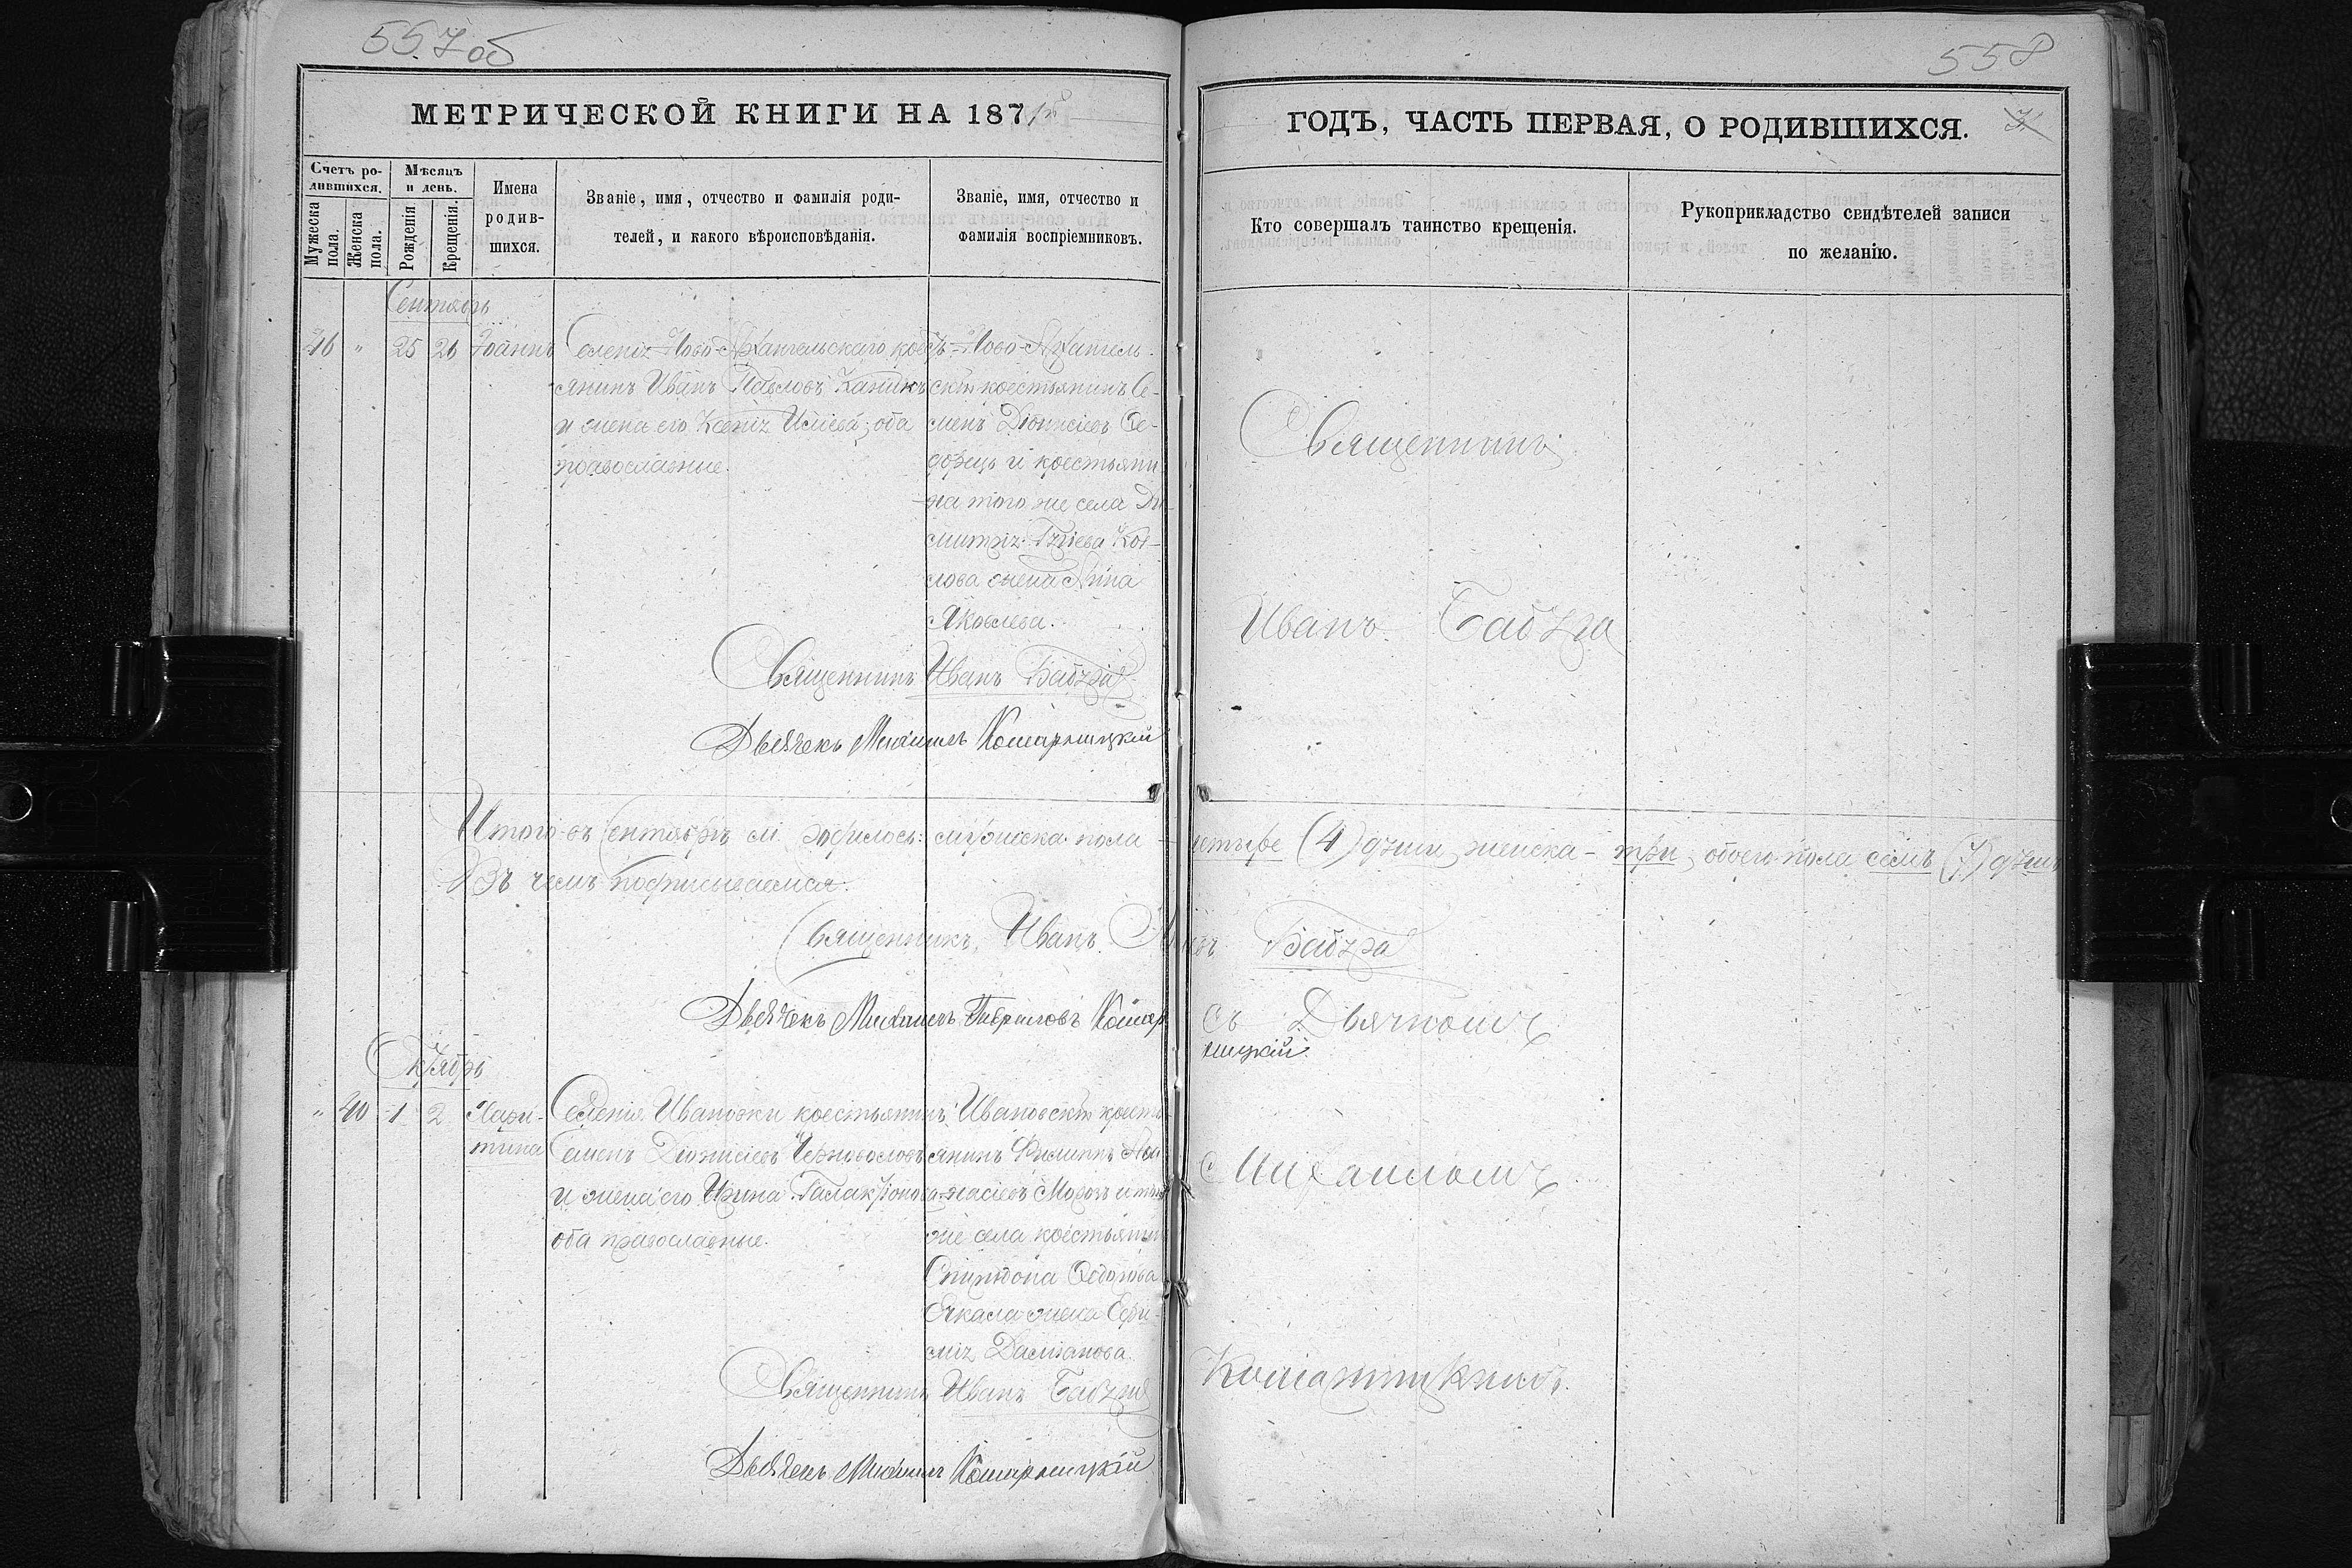 557 об
МЕТРИЧЕСКОЙ КНИГИ НА 1871й
Счетъ ро-
дившихся.
Мужеска
пола.
Женска
пола.
Мѣсяцъ
и день.
Рожденія
Крещенія.
Имена
родив-
шихся.
Званіе, имя, отчество и фамилія роди-
телей, и какого вѣроисповѣданія.
Званіе, имя, отчество и
фамилія воспріемниковъ.
Сентябрь
46 " 25 26 Іоаннъ
Селенія Ново-Архангельскаго кресть-
янинъ Иванъ Павловъ
и жена его Ксенія оба
православные.
Ново-Архангель-
скій крестьянинъ Се-
менъ Діонисіевъ Ѳе-
дорецъ и крестьяни-
на того же села Ди-
митрія Коз-
лова жена Анна
Яковлева.
Священникъ Иванъ Бабура
Дьячекъ Михаилъ Кошарницкій
Итого въ Сентябрѣ м. родилось: мужеска пола - четыре (4) души, женска - три, обоего пола семь (7) душъ
Въ чемъ подписываемся:
Священникъ Иванъ Бабура
Дьячекъ Михаилъ Гавриловъ Кошарницкій
Октябрь
" 40 1 2 Хари-
тина
Селенія Ивановки крестьянинъ
Семенъ Діонисіевъ
и жена его Ирина Галактіонова
оба православные.
Ивановскій кресть-
янинъ Филиппъ Аѳа-
насіевъ Морозъ и того
же села крестьянина
Спиридона Ѳедорова
жена Евфи-
мія Даміанова
Священникъ Иванъ Бабура
Дьячекъ Михаилъ Кошарницкій
558
ГОДЪ, ЧАСТЬ ПЕРВАЯ, О РОДИВШИХСЯ.
Кто совершалъ таинство крещенія.
Рукоприкладство свидѣтелей записи
по желанію.
Священникъ
Иванъ Бабура
съ Дьячкомъ
Михаиломъ
Кошарницкимъ.